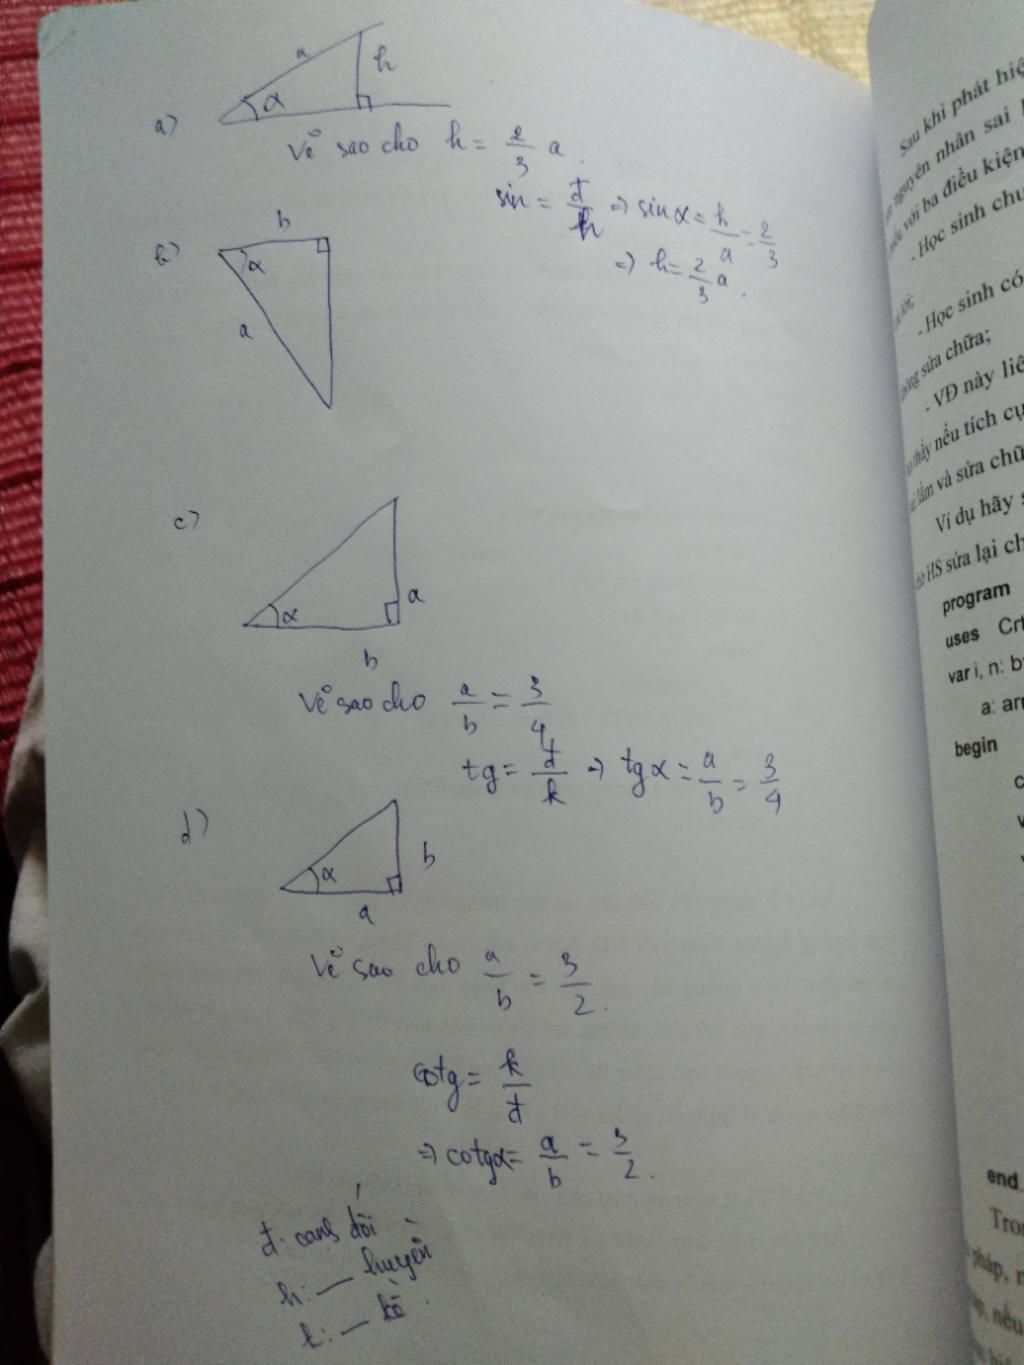 a)
a
h
α
Vẽ sao cho h = 2/3 a.
sin = đ/h ⇒ sinα = h/a = 2/3
⇒ h = 2/3 a.
b)
b
α
a
c)
α
a
b
Vẽ sao cho a/b = 3/4
tg = đ/k ⇒ tgα = a/b = 3/4
d)
α
b
a
Vẽ sao cho a/b = 3/2.
cotg = k/đ
⇒ cotgα = a/b = 3/2.
đ: cạnh đối
h: — huyền
k: — kề.
Sau khi phát hiệ
nguyên nhân sai
với ba điều kiện
- Học sinh chu
lời;
- Học sinh có
sửa chữa;
- VĐ này liê
thấy nếu tích cự
lầm và sửa chữ
Ví dụ hãy s
HS sửa lại ch
program
uses Crt
var i, n: b
a: arr
begin
c
v
end.
Tron
pháp, n
nếu